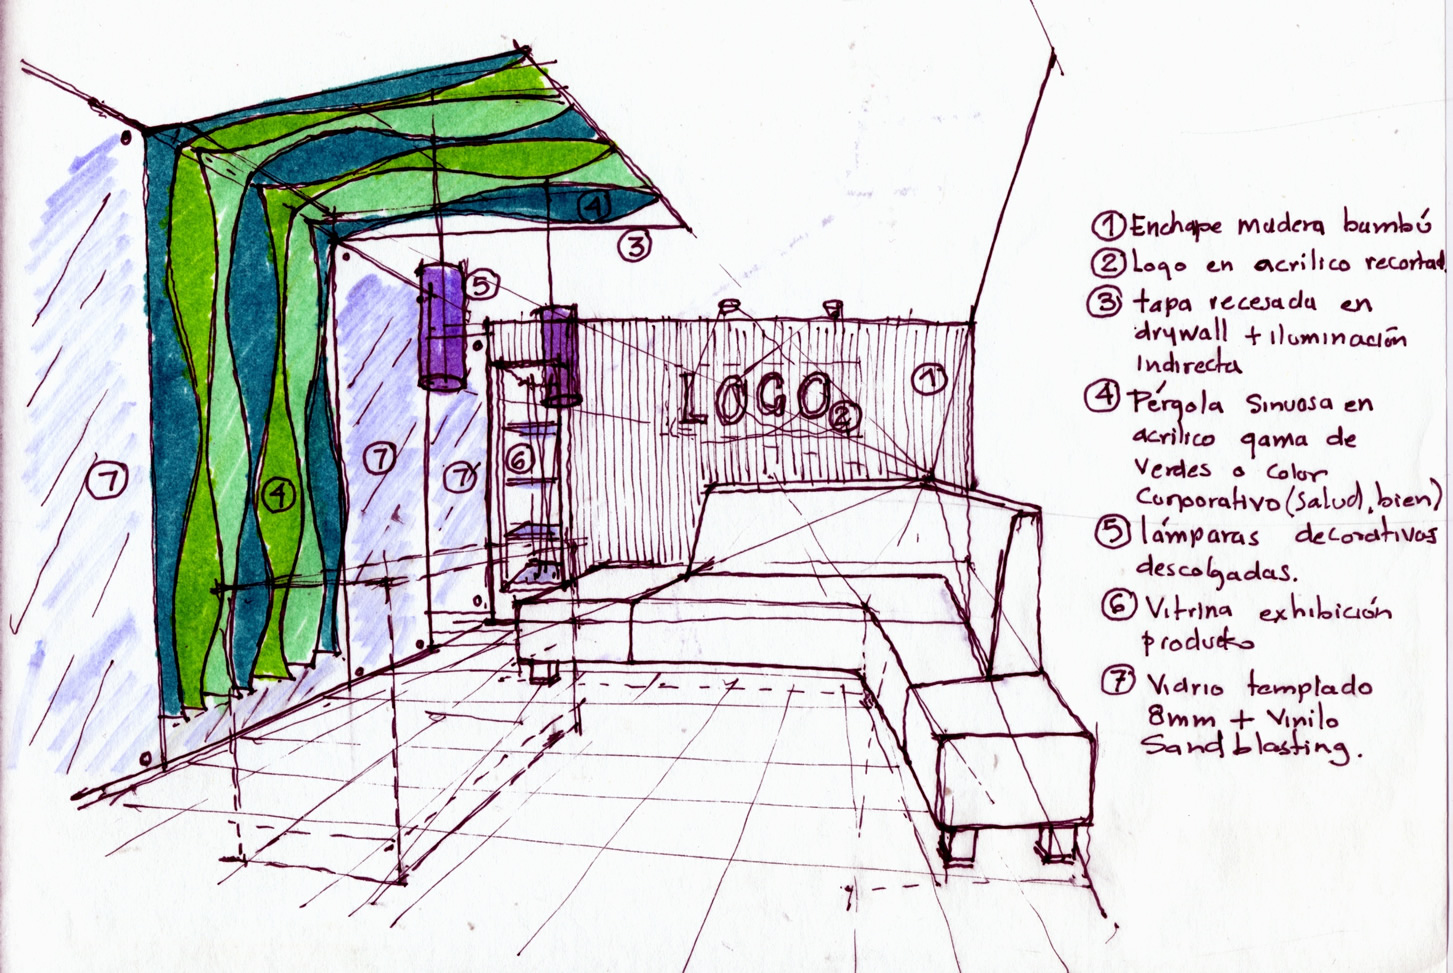 ① Enchape madera bambú
② Logo en acrílico recortad
③ tapa recesada en
drywall + iluminación
Indirecta
④ Pérgola Sinuosa en
acrílico gama de
Verdes o color
Corporativo (Salud, bien)
⑤ lámparas decorativas
descolgadas.
⑥ Vitrina exhibición
producto
⑦ Vidrio templado
8mm + Vinilo
Sandblasting.
④
③
⑤
LOGO
②
①
⑦
④
⑦
⑦
⑥